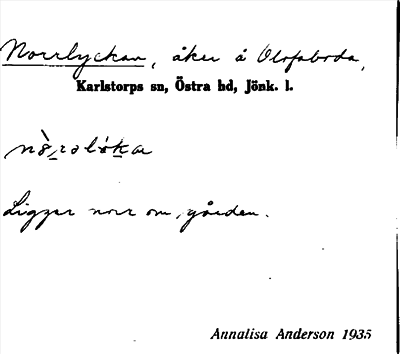 Norrlyckan, åker å Olofaboda,
Karlstorps sn, Östra hd, Jönk. l.
Ligger norr om gården.
Annalisa Anderson 1935